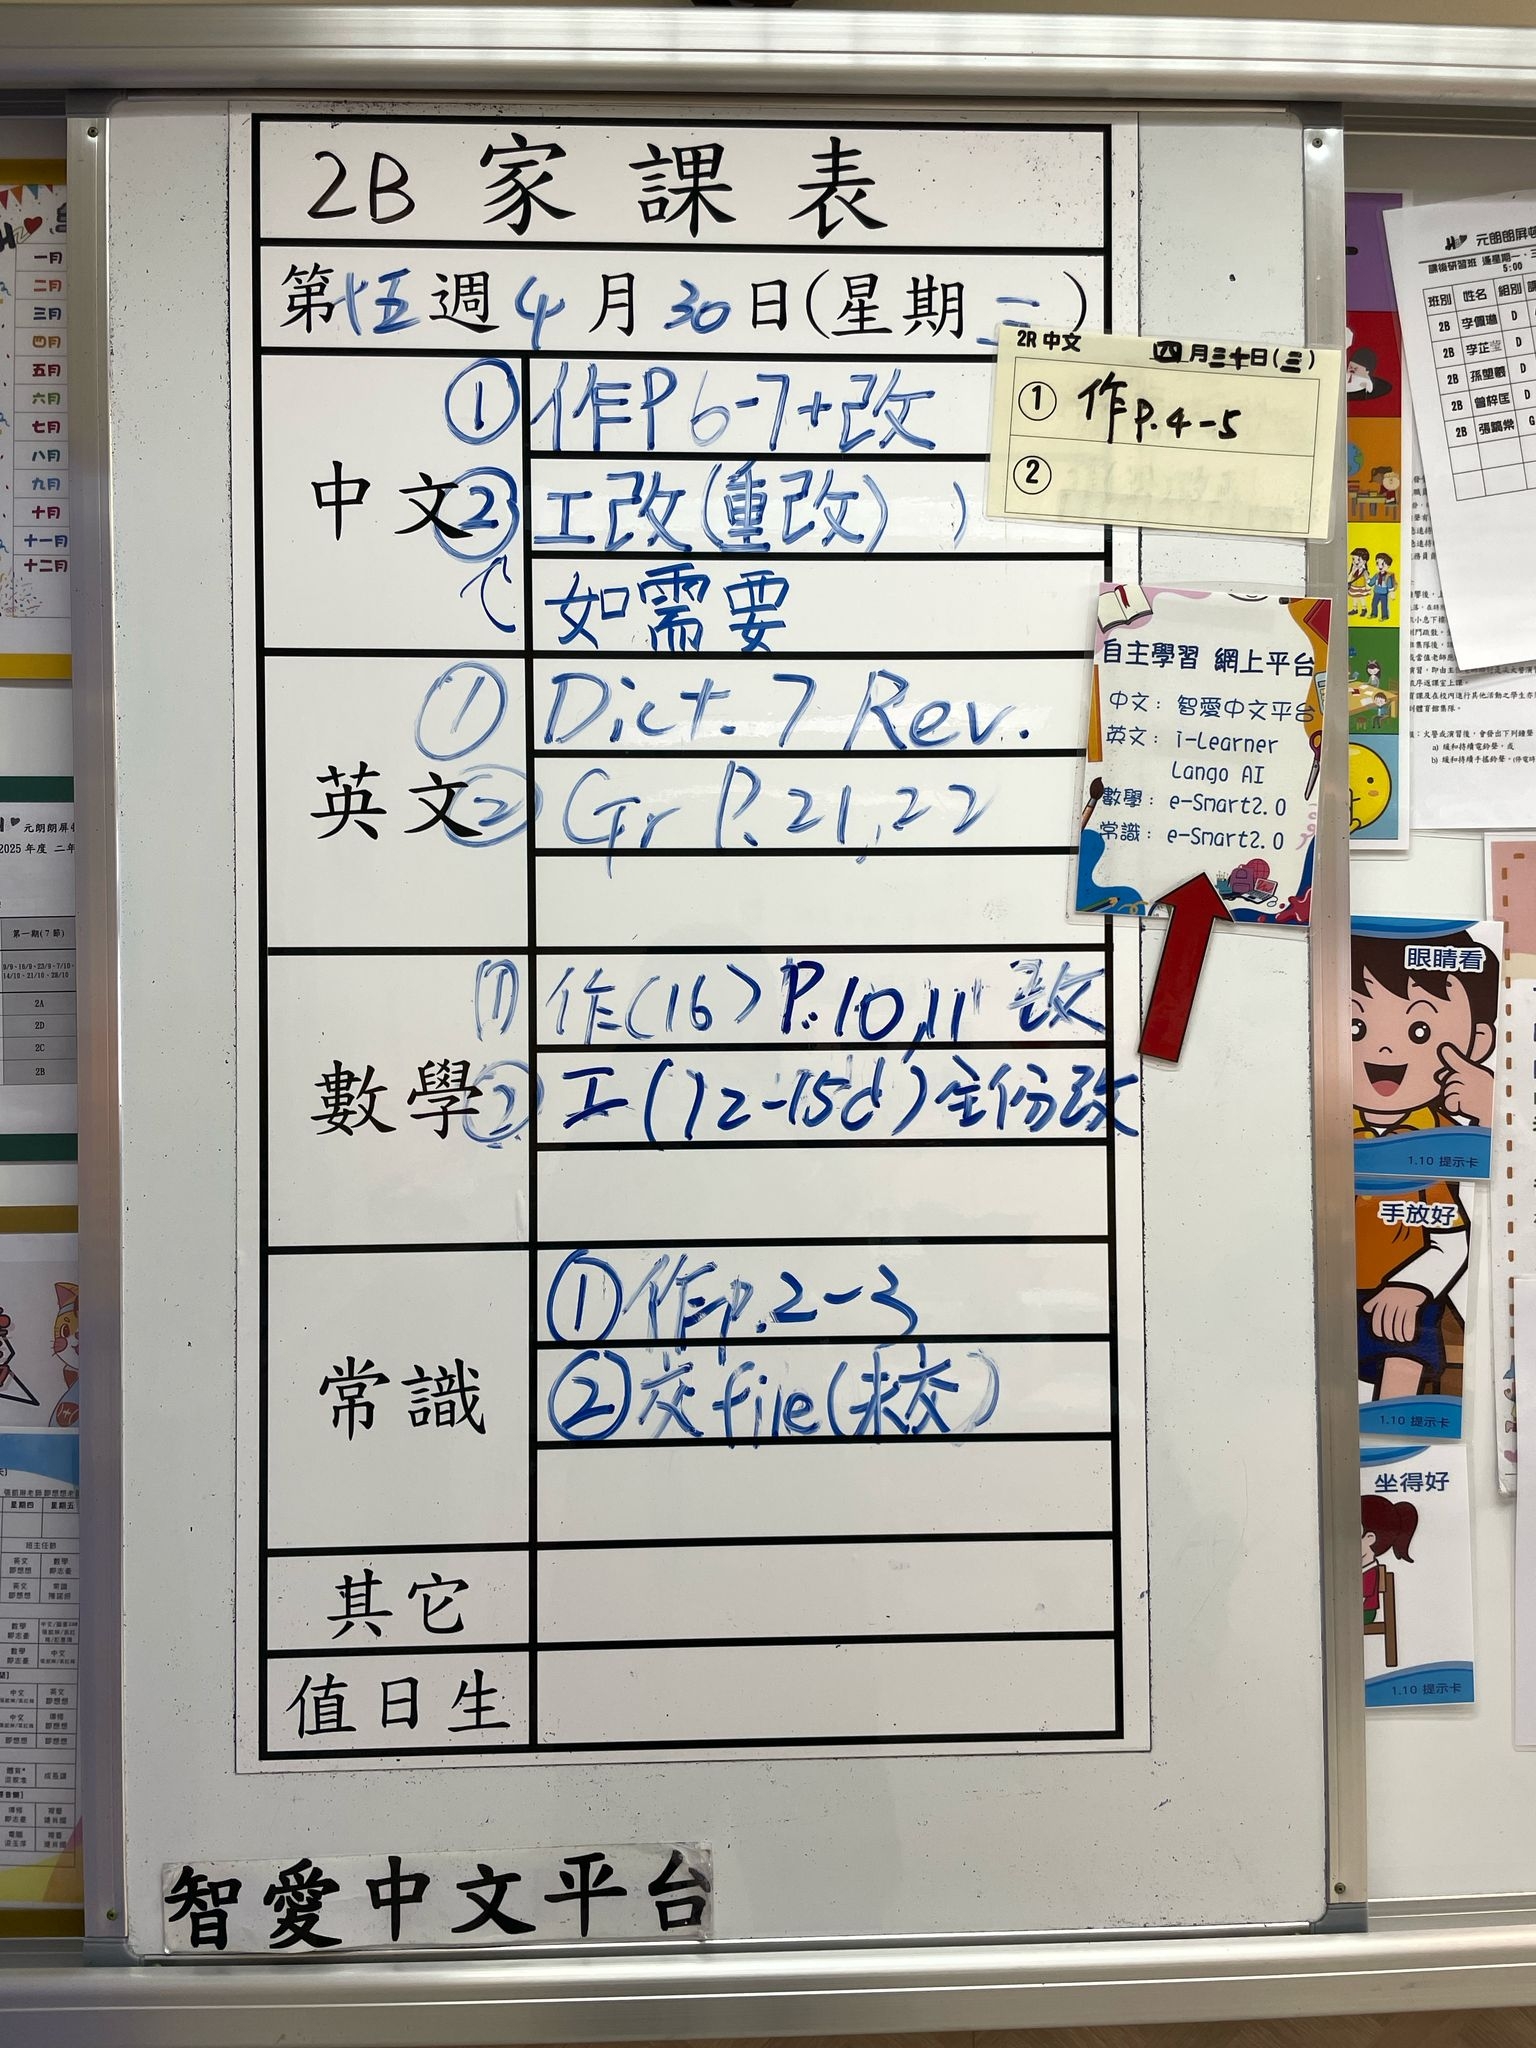 2B 家課表
第十五週4月30日(星期三)
中文
① 作P 6-7+改
② 工改(重改)
如需要
2R 中文 四月三十日(三)
① 作 P.4-5
②
英文
① Dict. 7 Rev.
② Gr P.21,22
數學
① 作(16) P.10,11 改
② 工(12-15d)全份改
常識
① 作p.2-3
② 交file(未交)
其它
值日生
智愛中文平台
自主學習 網上平台
中文：智愛中文平台
英文：i-Learner
Lango AI
數學：e-Smart2.0
常識：e-Smart2.0
一月
二月
三月
四月
五月
六月
七月
八月
九月
十月
十一月
十二月
元朗朗屏
2025年度 二年
第一期(7節)
2A
2D
2C
2B
星期四 星期五
元朗朗屏
課後研習班 逢星期一、三
5:00
班別 姓名 組別
2B 李佩珊 D
2B 李芷瑩 D
2B 孫塱羲 D
2B 曾梓匡 D
2B 張鎬榮 G
眼睛看
1.10 提示卡
手放好
1.10 提示卡
坐得好
1.10 提示卡